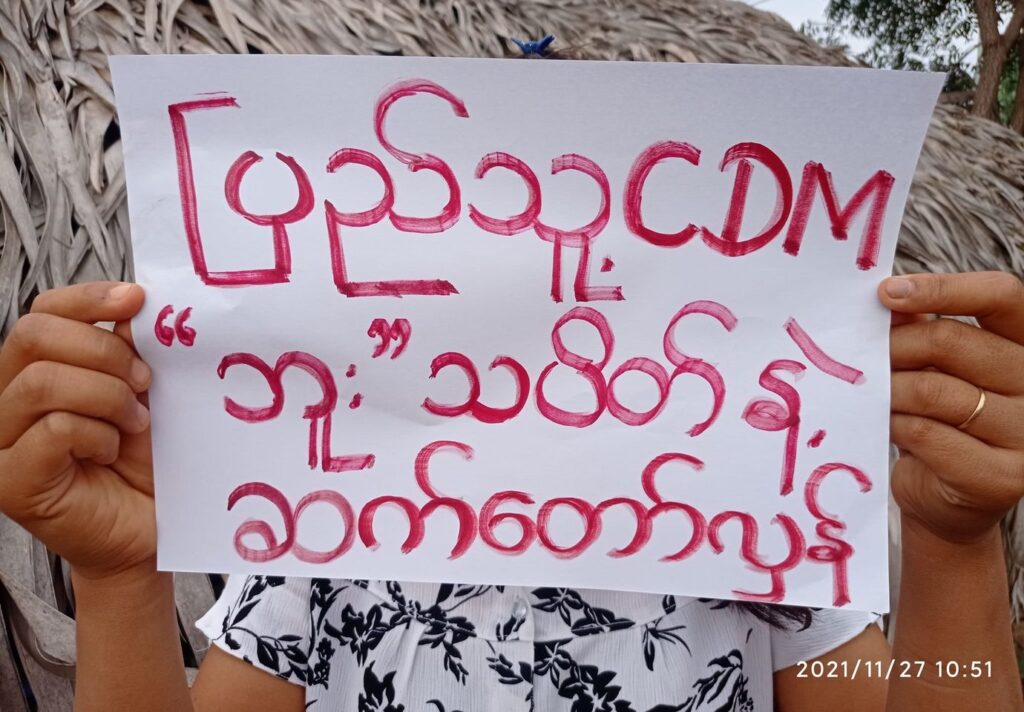 ပြည်သူ့ CDM
“ဘူး” သပိတ်နဲ့
ဆက်တော်လှန်
2021/11/27 10:51